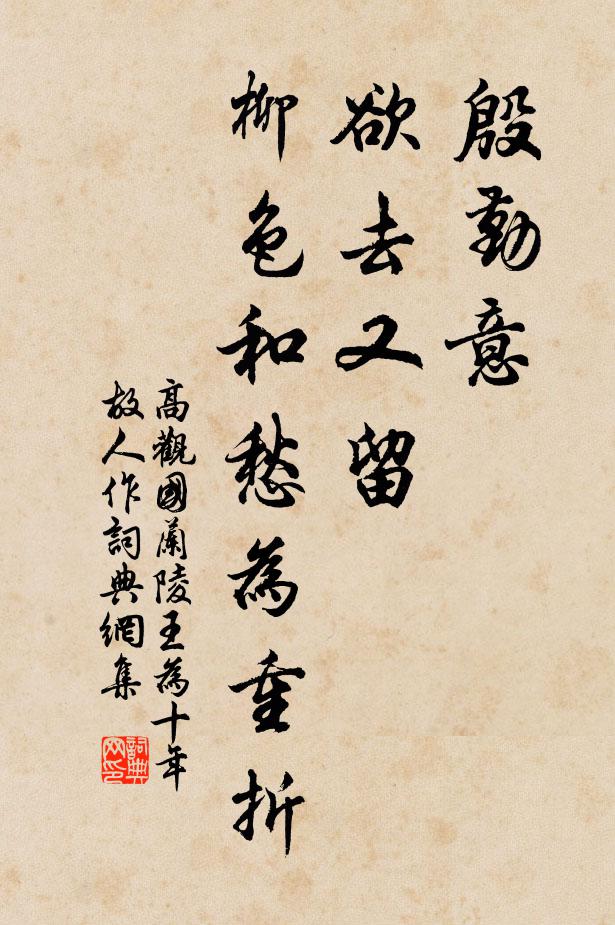 殷勤意
欲去又留
柳色和愁為重折
高觀國蘭陵王為十年
故人作詞典網集
詞典网印